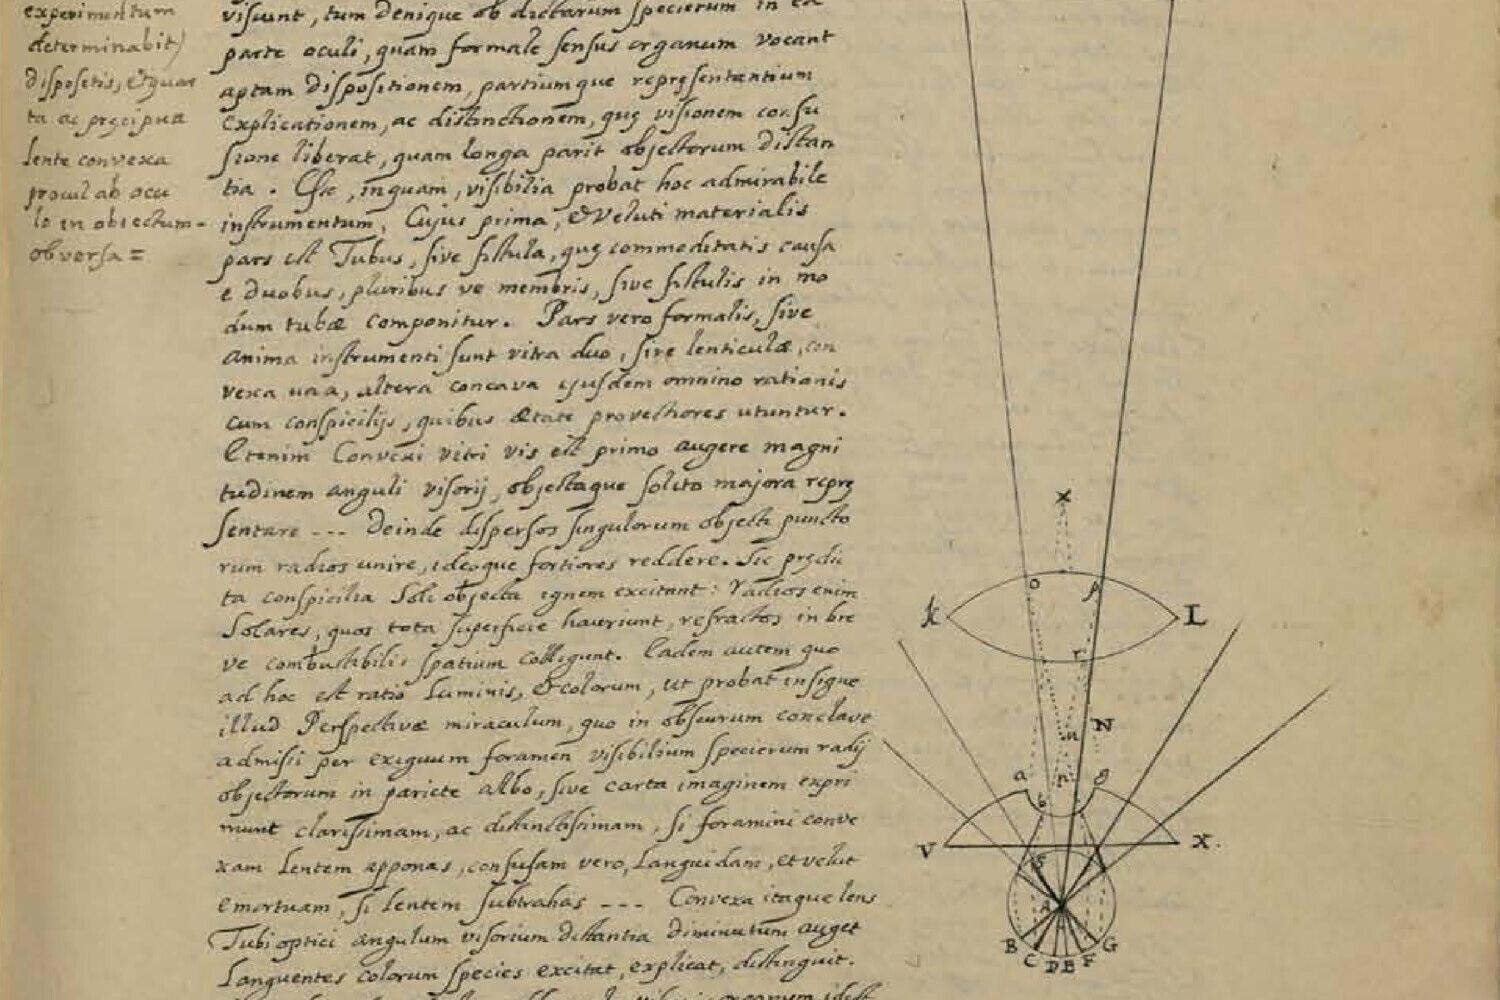 experimentum
determinabit)
disposetis, et quar
ta ac pręcipua
lente convexa
procul ab ocu
lo in obiectum-
obversa =
visunt, tum denique ob dictarum specierum in ea
parte oculi, quam formale sensus organum vocant
aptam dispositionem, partiumque repręsentantium
explicationem, ac distinctionem, quę visionem confu
sione liberat, quam longa parit objectorum distan
tia. Esse, inquam, visibilia probat hoc admirabile
instrumentum, Cujus prima, et veluti materialis
pars est Tubus, sive fistula, quę commoditatis causa
e duobus, pluribus ve membris, sive fistulis in mo
dum tubæ componitur. Pars vero formalis, sive
anima instrumenti sunt vitra duo, sive lenticulæ, con
vexa una, altera concava ejusdem omnino rationis
cum conspicilijs, quibus ætate provectiores utuntur.
Etenim Convexi vitri vis est primo augere magni
tudinem anguli visorij, objectaque solito majora reprę
sentare --- Deinde dispersos singulorum objecti puncto
rum radios unire, ideoque fortiores reddere. Sic prędic
ta conspicilia Soli objecta ignem excitant: radios enim
Solares, quos tota superficie hauriunt, refractos in bre
ve combustibilis spatium colligunt. Eadem autem quo
ad hoc est ratio luminis, et colorum, ut probat insigne
illud Perspectivæ miraculum, quo in obscurum conclave
admissi per exiguum foramen visibilium specierum radij
objectorum in pariete albo, sive carta imaginem expri
munt clarissimam, ac distinctissimam, si foramini conve
xam Lentem apponas, confusam vero, Languidam, et velut
emortuam, si Lentem subtrahas --- Convexa itaque lens
Tubi optici angulum visorium distantia diminutum auget
Languentes colorum species excitat, explicat, distinguit.
x
o
p
k
L
r
N
u
a
g
b
V
x.
i
A
B
C
D
E
F
G